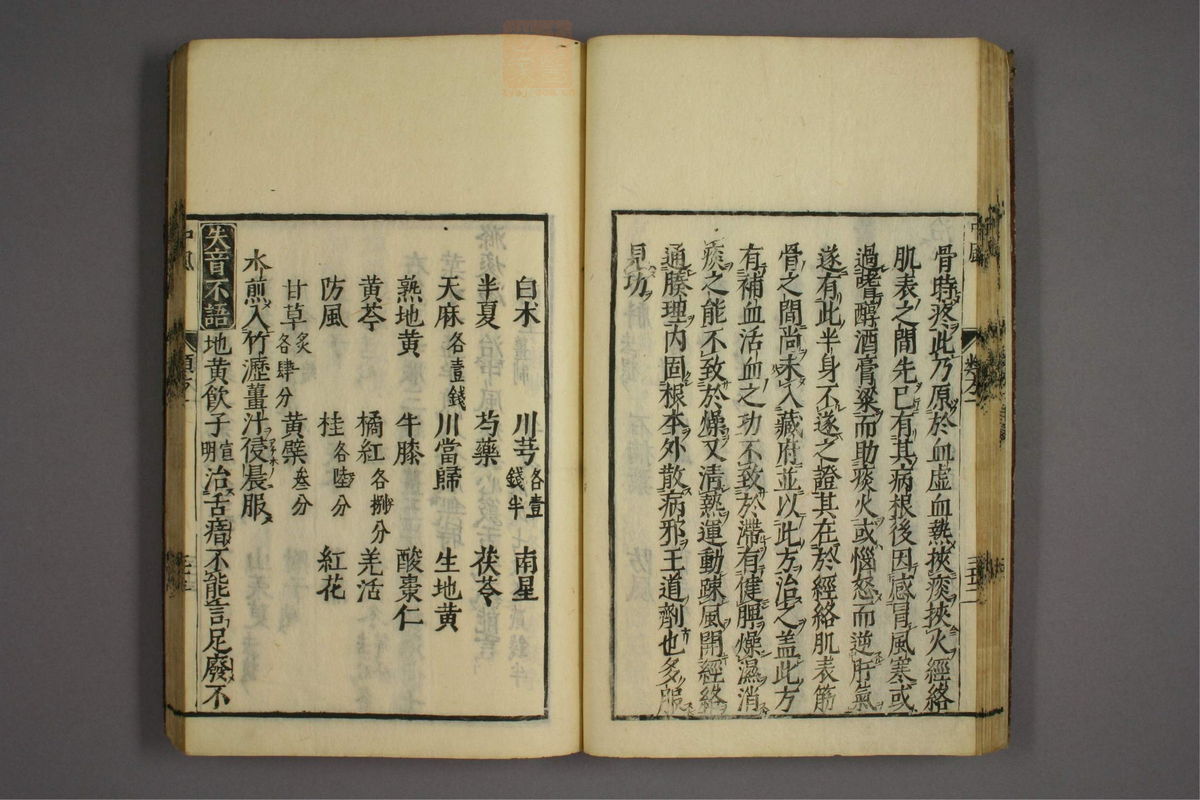 骨時疼此乃原於血虛血熱挾痰挾火經絡
肌表之間先已有其病根後因感冒風寒或
過嗜醇酒膏粱而助痰火或惱怒而逆肝氣
遂有此半身不遂之證其在於經絡肌表筋
骨之間尚未入藏府並以此方治之蓋此方
有補血活血之功不致於滯有健脾燥濕消
痰之能不致於燥又清熱運動疎風開經絡
通腠理內固根本外散病邪王道劑也多服
見功
白朮 川芎各壹錢半 南星
半夏 芍藥 茯苓
天麻各壹錢 川當歸 生地黃
熟地黃 牛膝 酸棗仁
黃芩 橘紅各捌分 羌活
防風 桂各陸分 紅花
甘草炙各肆分 黃蘗叁分
水煎入竹瀝薑汁侵晨服
失音不語 地黃飲子宣明 治舌瘖不能言足廢不
中風
中風